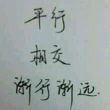 平行
相交
渐行渐远